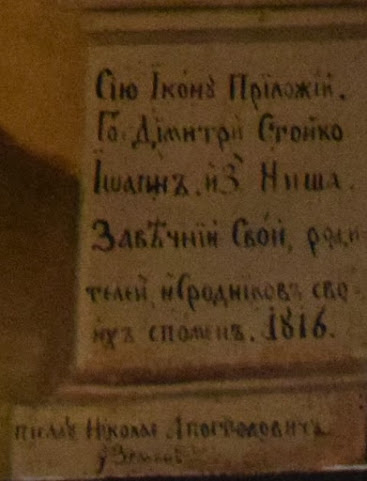 Сїю Їкону Прїложїй.
Го. Дїмитрїй Стойко
Їωанъ. й З Ниша.
Завѣчнїй Свой, роди
телей, й Сродниковъ сво
ихъ спомен. 1816.
писалъ Николае Апостоловичъ